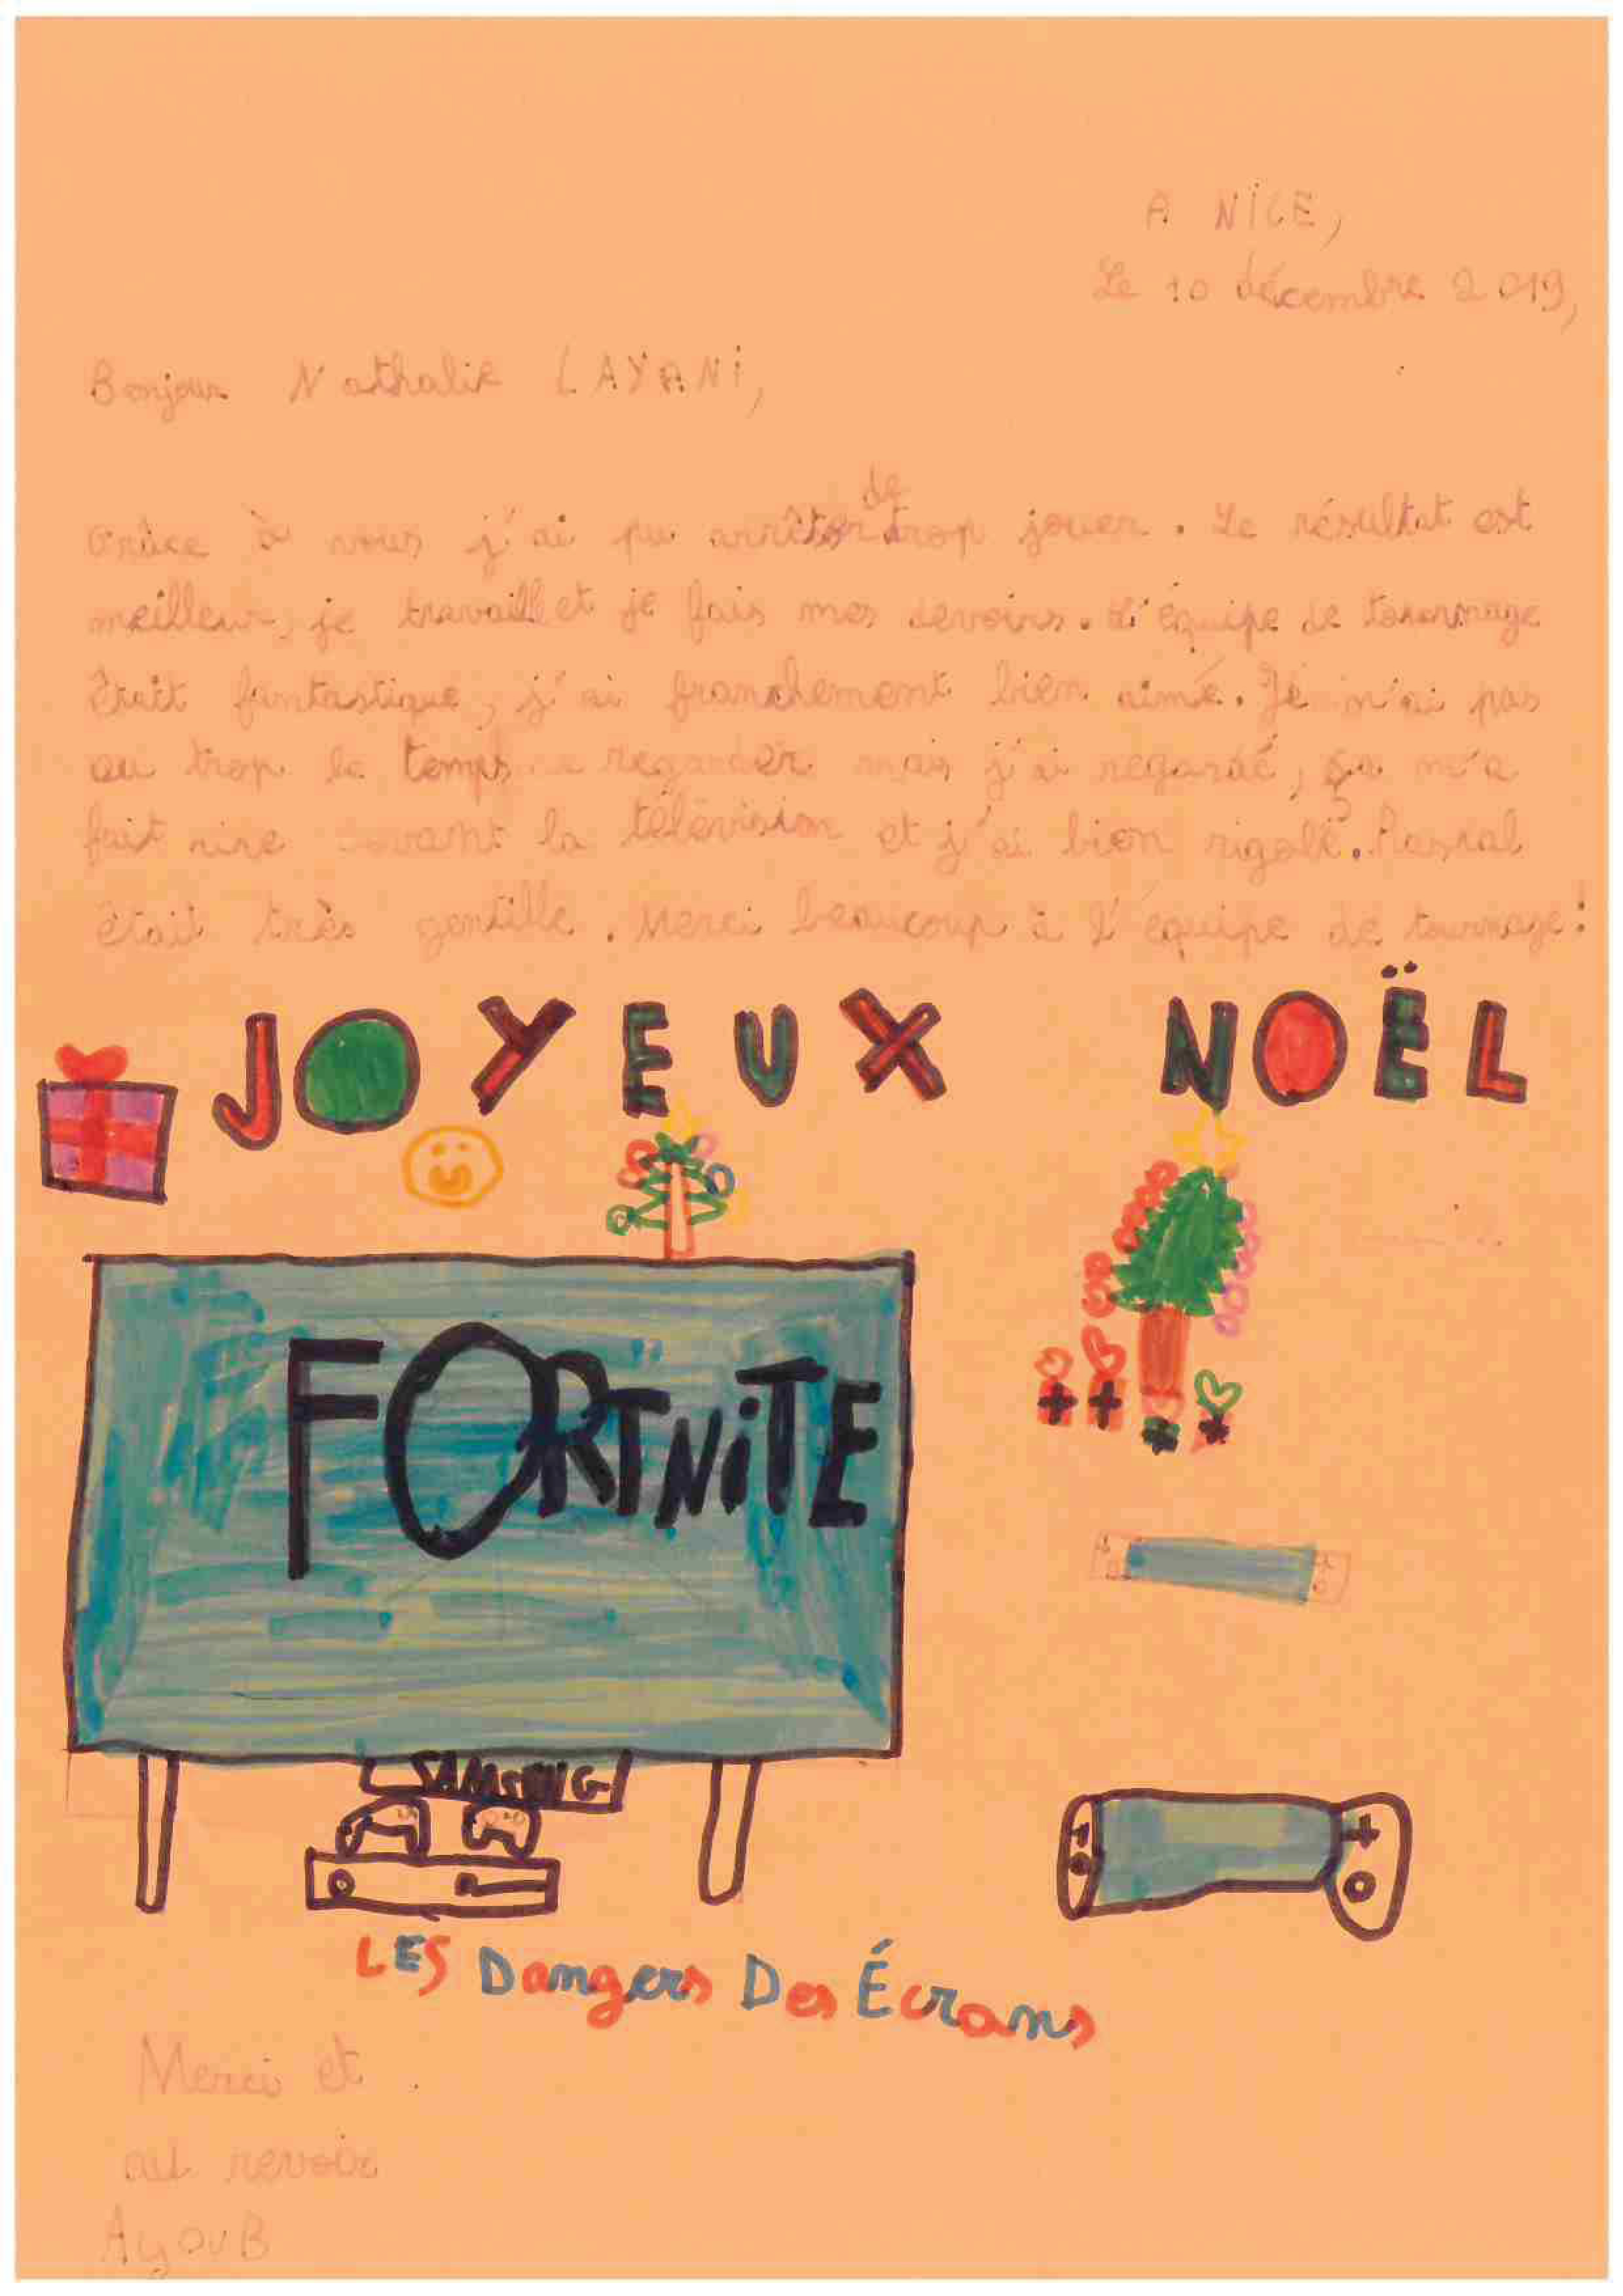 A NiCE,
Le 10 décembre 2019,
Bonjour Nathalie LAYANi,
de
Grâce à vous j'ai pu arrêter trop jouer. Le résultat est
meilleur, je travaille et je fais mes devoirs. L'équipe de tournage
était fantastique, j'ai franchement bien aimé. Je n'ai pas
eu trop le temps de regarder mais j'ai regardé, ça m'a
fait rire devant la télévision et j'ai bien rigolé. Pascal
était très gentille. Merci beaucoup à l'équipe de tournage!
JOYEUX NOËL
FORTNiTE
SAMSUNG
LES Dangers Des Écrans
Merci et
au revoir
AyouB